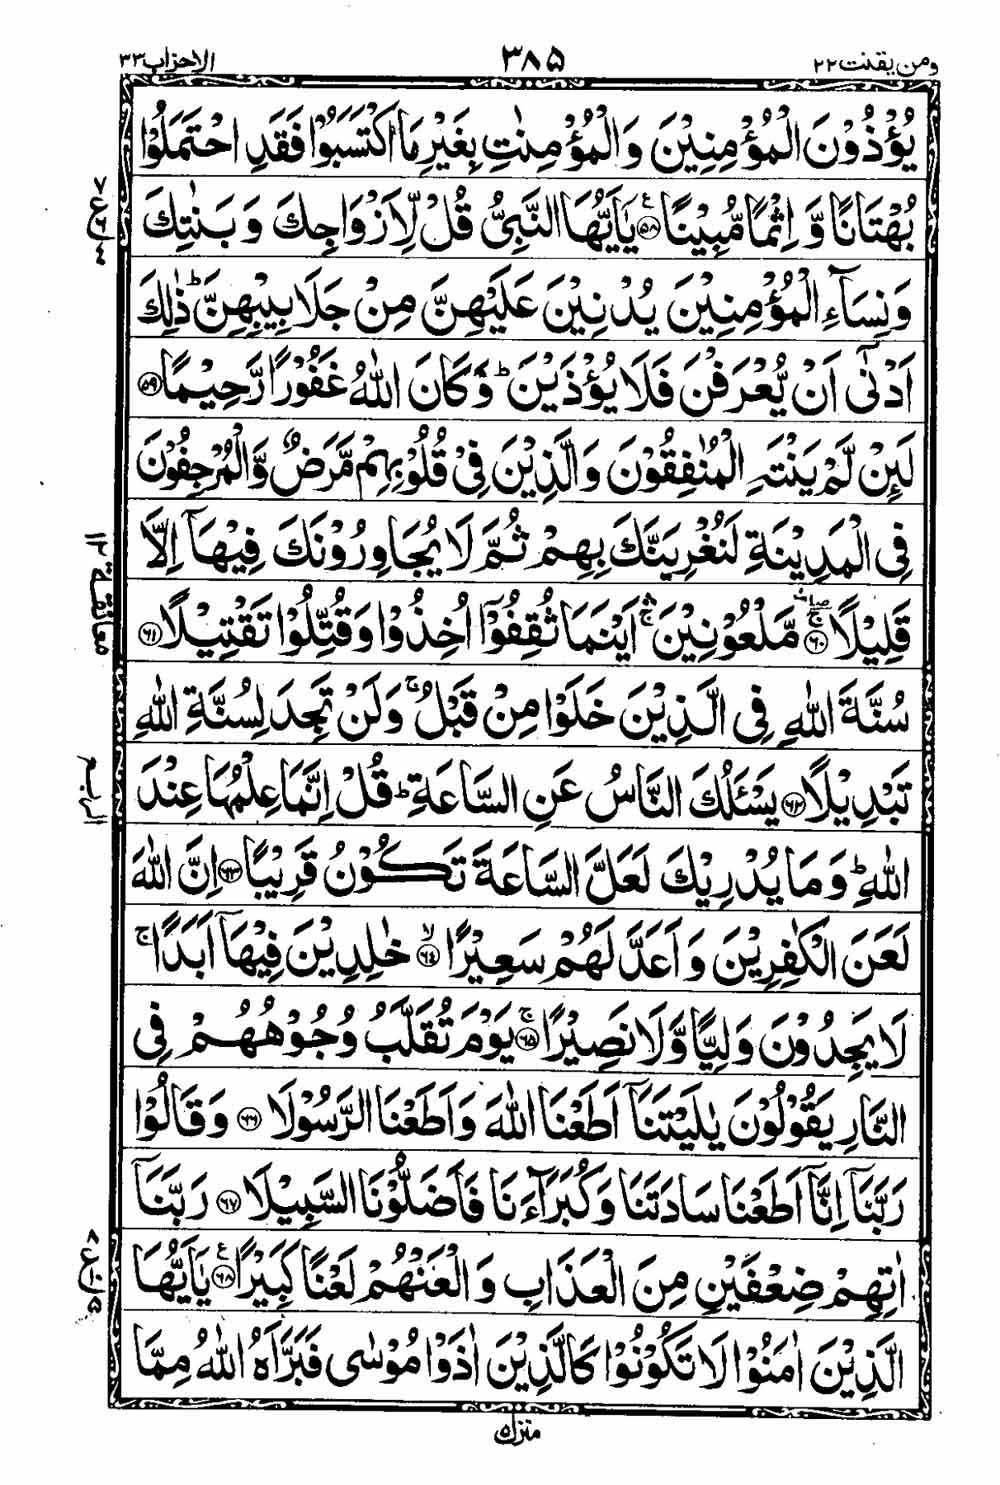 ومن يقنت ٢٢
٣٨٥
الاحزاب ٣٣
يُؤْذُوْنَ الْمُؤْمِنِيْنَ وَالْمُؤْمِنٰتِ بِغَيْرِ مَا اكْتَسَبُوْا فَقَدِ احْتَمَلُوْا
بُهْتَانًا وَّ اِثْمًا مُّبِيْنًا ۟ع ﴿۵۸﴾ يٰۤاَيُّهَا النَّبِىُّ قُلْ لِّاَزْوَاجِكَ وَ بَنٰتِكَ
وَنِسَآءِ الْمُؤْمِنِيْنَ يُدْنِيْنَ عَلَيْهِنَّ مِنْ جَلَابِيْبِهِنَّ ؕ ذٰلِكَ
اَدْنٰۤى اَنْ يُّعْرَفْنَ فَلَا يُؤْذَيْنَ ؕ وَكَانَ اللّٰهُ غَفُوْرًا رَّحِيْمًا ﴿۵۹﴾
لَئِنْ لَّمْ يَنْتَهِ الْمُنٰفِقُوْنَ وَالَّذِيْنَ فِىْ قُلُوْبِهِمْ مَّرَضٌ وَّالْمُرْجِفُوْنَ
فِى الْمَدِيْنَةِ لَنُغْرِيَنَّكَ بِهِمْ ثُمَّ لَا يُجَاوِرُوْنَكَ فِيْهَاۤ اِلَّا
قَلِيْلًا ﴿۶۰﴾ مَّلْعُوْنِيْنَ ۛۚ اَيْنَمَا ثُقِفُوْۤا اُخِذُوْا وَقُتِّلُوْا تَقْتِيْلًا ﴿۶۱﴾
سُنَّةَ اللّٰهِ فِى الَّذِيْنَ خَلَوْا مِنْ قَبْلُ ۚ وَلَنْ تَجِدَ لِسُنَّةِ اللّٰهِ
تَبْدِيْلًا ﴿۶۲﴾ يَسْـَٔلُكَ النَّاسُ عَنِ السَّاعَةِ ؕ قُلْ اِنَّمَا عِلْمُهَا عِنْدَ
اللّٰهِ ؕ وَمَا يُدْرِيْكَ لَعَلَّ السَّاعَةَ تَكُوْنُ قَرِيْبًا ﴿۶۳﴾ اِنَّ اللّٰهَ
لَعَنَ الْكٰفِرِيْنَ وَاَعَدَّ لَهُمْ سَعِيْرًا ۙ ﴿۶۴﴾ خٰلِدِيْنَ فِيْهَاۤ اَبَدًا ۚ
لَا يَجِدُوْنَ وَلِيًّا وَّلَا نَصِيْرًا ۚ ﴿۶۵﴾ يَوْمَ تُقَلَّبُ وُجُوْهُهُمْ فِى
النَّارِ يَقُوْلُوْنَ يٰلَيْتَنَاۤ اَطَعْنَا اللّٰهَ وَاَطَعْنَا الرَّسُوْلَا ﴿۶۶﴾ وَقَالُوْا
رَبَّنَاۤ اِنَّاۤ اَطَعْنَا سَادَتَنَا وَكُبَرَآءَنَا فَاَضَلُّوْنَا السَّبِيْلَا ﴿۶۷﴾ رَبَّنَاۤ
اٰتِهِمْ ضِعْفَيْنِ مِنَ الْعَذَابِ وَالْعَنْهُمْ لَعْنًا كَبِيْرًا ع ﴿۶۸﴾ يٰۤاَيُّهَا
الَّذِيْنَ اٰمَنُوْا لَا تَكُوْنُوْا كَالَّذِيْنَ اٰذَوْا مُوْسٰى فَبَرَّاَهُ اللّٰهُ مِمَّا
معانقة ١٢
منزل ۵